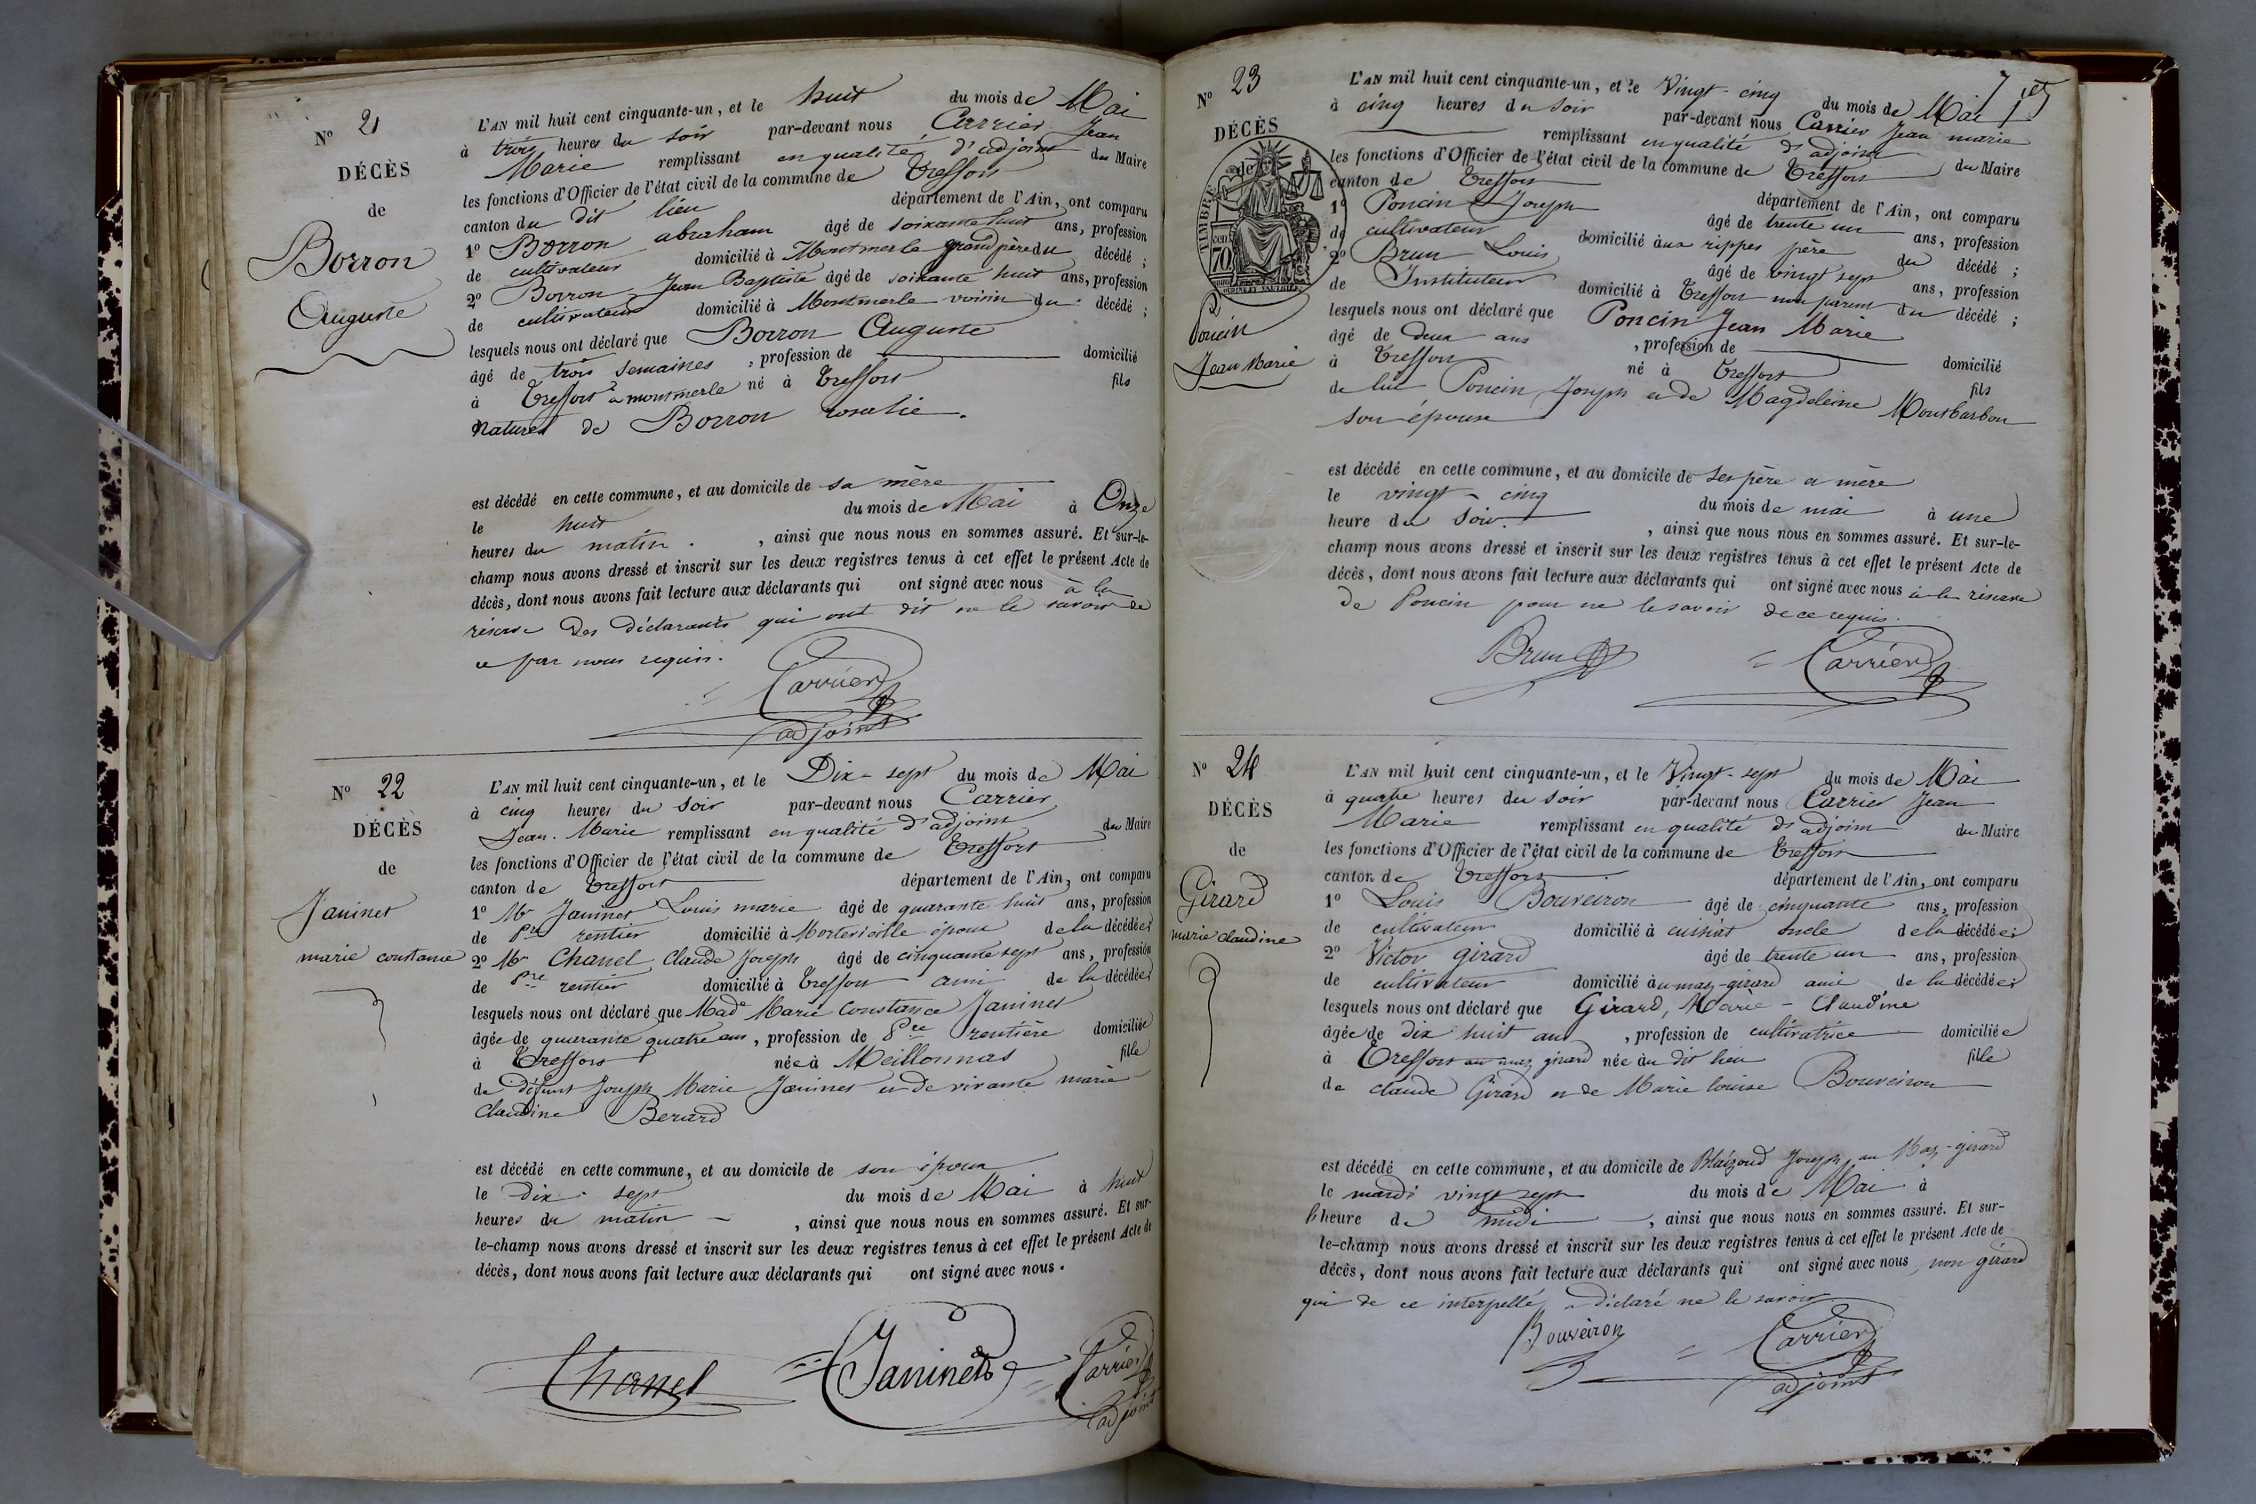 N° 21
DÉCÈS
de
Borron
Auguste
L'AN mil huit cent cinquante-un, et le huit du mois de Mai
à trois heures du soir par-devant nous Carrier Jean
Marie remplissant en qualité d'adjoint du Maire
les fonctions d'Officier de l'état civil de la commune de Treffort
canton du dit lieu département de l'Ain, ont comparu
1° Borron abraham âgé de soixante huit ans, profession
de cultivateur domicilié à Montmerle grand père du décédé ;
2° Borron Jean Baptiste âgé de soixante huit ans, profession
de cultivateur domicilié à Montmerle voisin du décédé ;
lesquels nous ont déclaré que Borron Auguste
âgé de trois semaines , profession de domicilié
à Treffort à montmerle né à Treffort fils
Naturel de Borron rosalie.
est décédé en cette commune, et au domicile de sa mère
le huit du mois de Mai à Onze
heures du matin. , ainsi que nous nous en sommes assuré. Et sur-le-
champ nous avons dressé et inscrit sur les deux registres tenus à cet effet le présent Acte de
décès, dont nous avons fait lecture aux déclarants qui ont signé avec nous à la
réserve des déclarants qui ont dit ne le savoir de
ce par nous requis.
Carrier
adjoint
N° 22
DÉCÈS
de
Janinet
marie constance
L'AN mil huit cent cinquante-un, et le Dix-sept du mois de Mai
à cinq heures du soir par-devant nous Carrier
Jean-Marie remplissant en qualité d'adjoint du Maire
les fonctions d'Officier de l'état civil de la commune de Treffort
canton de Treffort département de l'Ain, ont comparu
1° Mr Janinet Louis marie âgé de quarante huit ans, profession
de pre rentier domicilié à époux de la décédée ;
2° Mr Chanel Claude Joseph âgé de cinquante sept ans, profession
de pre rentier domicilié à Treffort ami de la décédée ;
lesquels nous ont déclaré que Made Marie Constance Janinet
âgée de quarante quatre ans, profession de Pre rentière domiciliée
à Treffort née à Meillonnas fille
de défunt Joseph Marie Janinet et de vivante marie
Claudine Berard
est décédé en cette commune, et au domicile de son époux
le Dix-sept du mois de Mai à huit
heures du matin , ainsi que nous nous en sommes assuré. Et sur-
le-champ nous avons dressé et inscrit sur les deux registres tenus à cet effet le présent Acte de
décès, dont nous avons fait lecture aux déclarants qui ont signé avec nous.
Chanel Janinet Carrier
adjoint
N° 23
DÉCÈS
de
TIMBRE
70
Poncin
Jean Marie
L'AN mil huit cent cinquante-un, et le Vingt-cinq du mois de Mai
à cinq heures du soir par-devant nous Carrier Jean marie
remplissant en qualité d'adjoint du Maire
les fonctions d'Officier de l'état civil de la commune de Treffort
canton de Treffort département de l'Ain, ont comparu
1° Poncin Joseph âgé de trente un ans, profession
de cultivateur domicilié aux rippes père du décédé ;
2° Brun Louis âgé de vingt sept ans, profession
de Instituteur domicilié à Treffort non parent du décédé ;
lesquels nous ont déclaré que Poncin Jean Marie
âgé de deux ans , profession de domicilié
à Treffort né à Treffort fils
de lui Poncin Joseph et de Magdeleine Montbarbon
son épouse
est décédé en cette commune, et au domicile de ses père et mère
le vingt-cinq du mois de mai à une
heure du soir. , ainsi que nous nous en sommes assuré. Et sur-le-
champ nous avons dressé et inscrit sur les deux registres tenus à cet effet le présent Acte de
décès, dont nous avons fait lecture aux déclarants qui ont signé avec nous à la réserve
de Poncin pour ne le savoir de ce requis.
Brun Carrier
N° 24
DÉCÈS
de
Girard
marie claudine
L'AN mil huit cent cinquante-un, et le Vingt-sept du mois de Mai
à quatre heures du soir par-devant nous Carrier Jean
Marie remplissant en qualité d'adjoint du Maire
les fonctions d'Officier de l'état civil de la commune de Treffort
canton de Treffort département de l'Ain, ont comparu
1° Louis Bouveiron âgé de cinquante ans, profession
de cultivateur domicilié à cuisiat oncle de la décédée ;
2° Victor girard âgé de trente un ans, profession
de cultivateur domicilié au maz-girard ami de la décédée ;
lesquels nous ont déclaré que Girard, Marie-Claudine
âgée de dix huit ans , profession de cultivatrice domiciliée
à Treffort au maz girard née au dit lieu fille
de claude Girard et de Marie louise Bouveiron
est décédé en cette commune, et au domicile de Blaizoud Joseph au Maz-girard
le mardi vingt sept du mois de Mai à
l'heure de midi , ainsi que nous nous en sommes assuré. Et sur-
le-champ nous avons dressé et inscrit sur les deux registres tenus à cet effet le présent Acte de
décès, dont nous avons fait lecture aux déclarants qui ont signé avec nous, non girard
qui de ce interpellé a déclaré ne le savoir
Bouveiron Carrier
adjoint